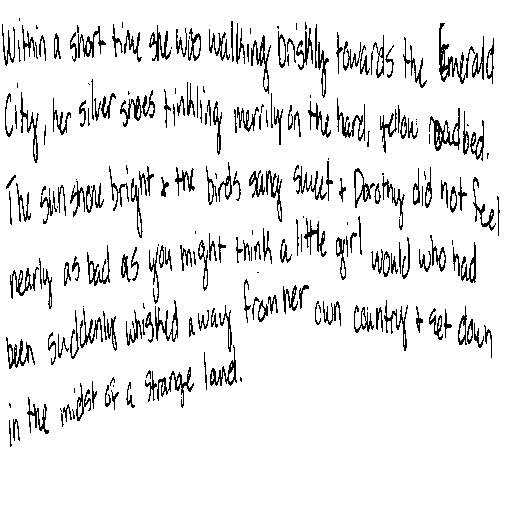 Within a short time she was walking briskly towards the Emerald
City, her silver shoes tinkling merrily on the hard, yellow roadbed.
The sun shone bright & the birds sang sweet & Dorothy did not feel
nearly as bad as you might think a little girl would who had
been suddenly whisked away from her own country & set down
in the midst of a strange land.